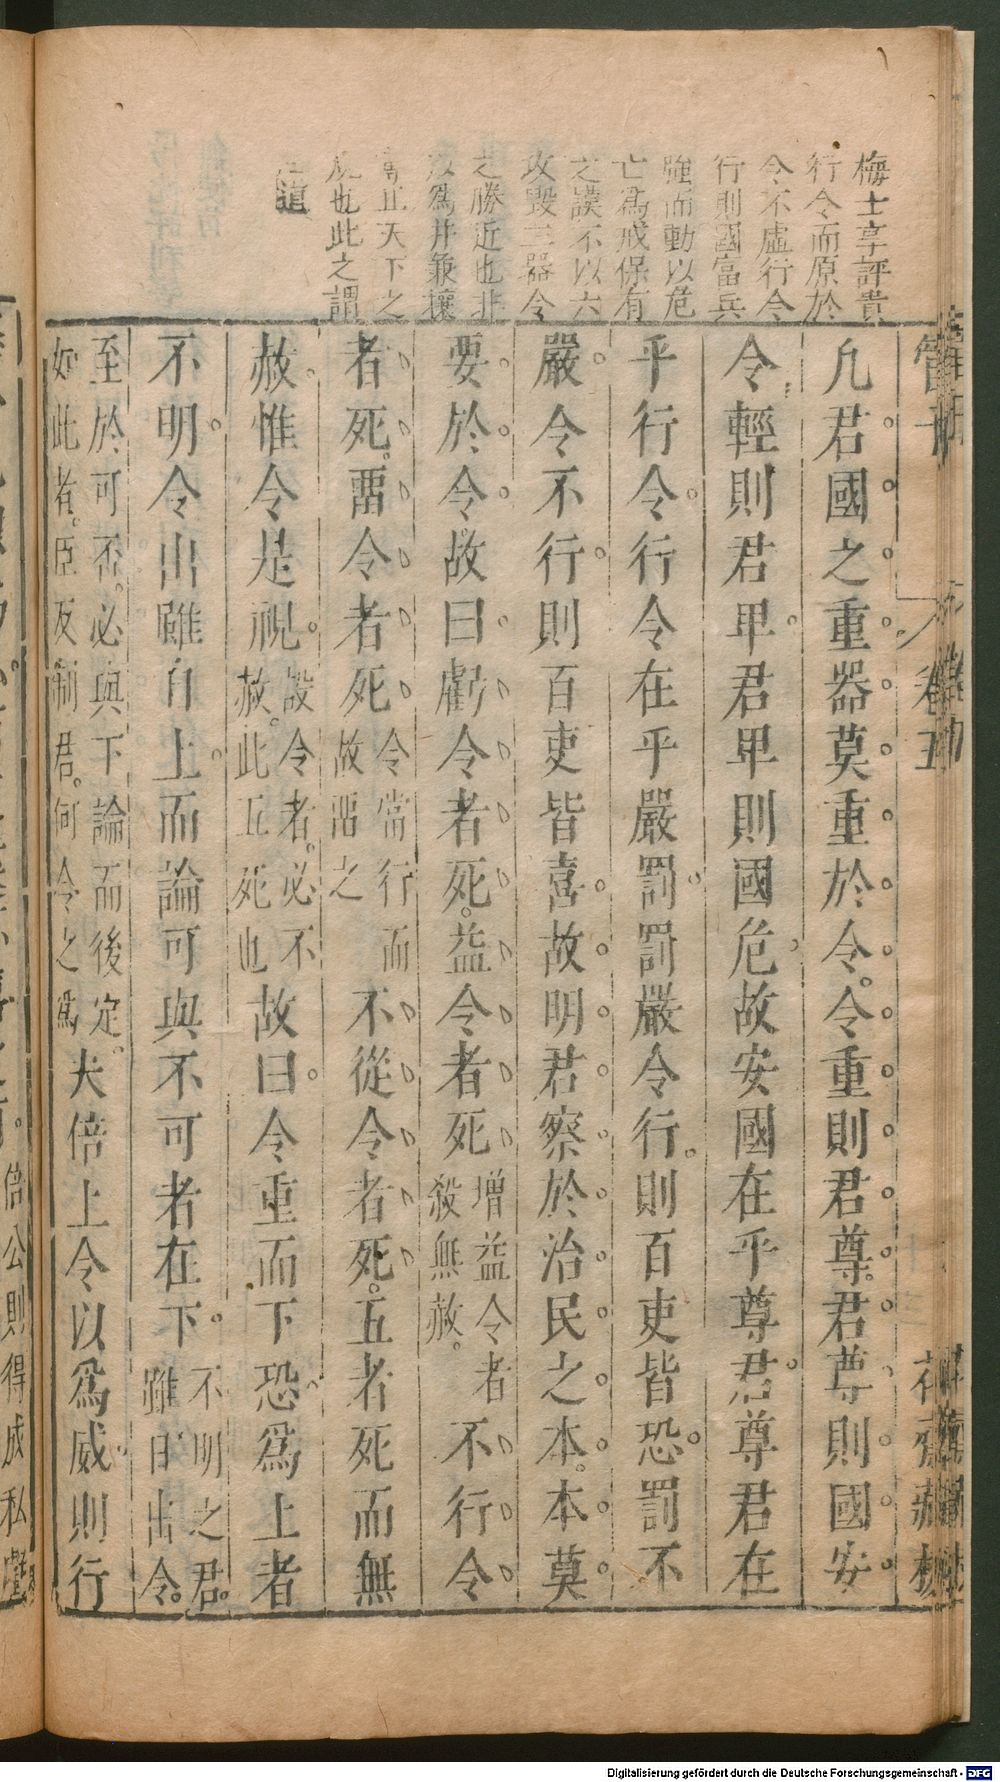 梅士享評貴
行令而原於
令不虛行令
行則國富兵
強而動以危
亡爲戒保有
之謨不以六
攻毀三器令
之勝近也非
爲并兼攘
正天下之
也此之謂
道
管子
卷五
凢君國之重器莫重於令。令重則君尊。君尊則國安
令輕則君𤰞。君𤰞則國危。故安國在乎尊君。尊君在
乎行令。行令在乎嚴罰。罰嚴令行。則百吏皆恐。罰不
嚴。令不行。則百吏皆喜。故明君察於治民之本。本莫
要於令。故曰虧令者死。益令者死增益令者殺無赦。不行令
者死。畱令者死令當行而故畱之不從令者死。五者死而無
赦。惟令是視。設令者。必不赦。此五死也故曰。令重而下恐。爲上者
不明。令出雖自上。而論可與不可者在下。不明之君。雖曰出令。
至於可否。必與下論而後定。如此者。臣反制君。何令之爲夫倍上令以爲威。則行
倍公則得成私
Digitalisierung gefördert durch die Deutsche Forschungsgemeinschaft - DFG